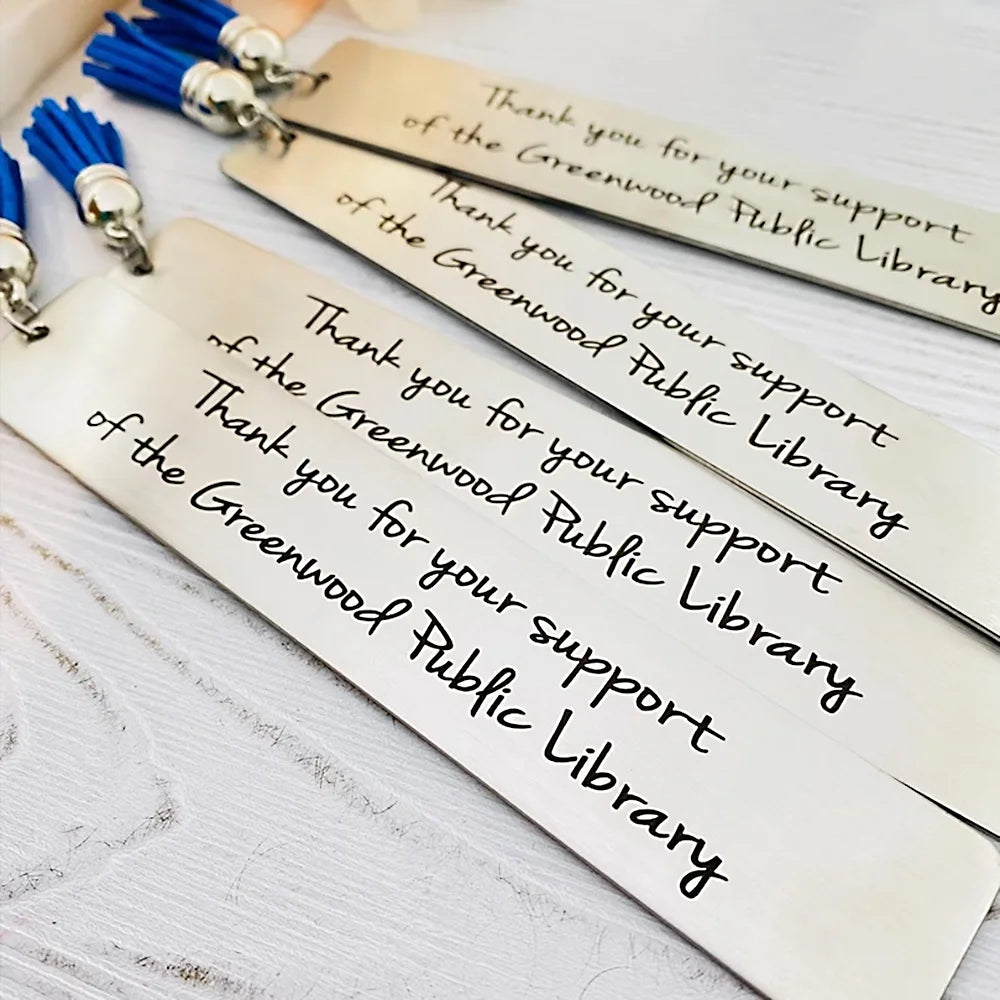 Thank you for your support
of the Greenwood Public Library
Thank you for your support
of the Greenwood Public Library
Thank you for your support
of the Greenwood Public Library
Thank you for your support
of the Greenwood Public Library